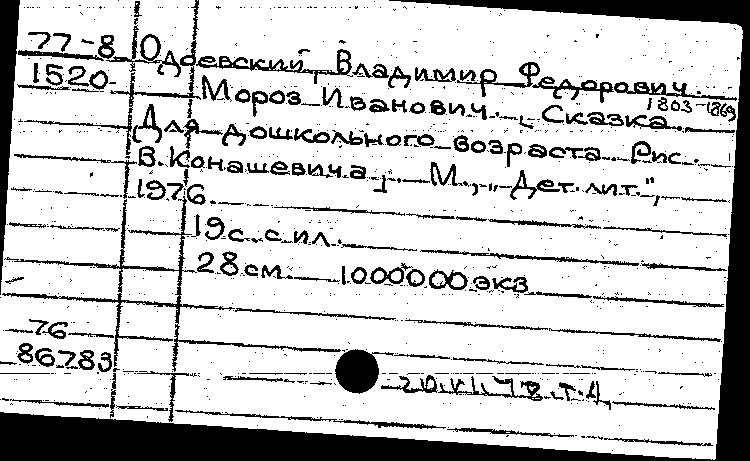 77-8 Одоевский, Владимир Федорович.
1520 Мороз Иванович. [Сказка. 1803-1869
Для дошкольного возраста. Рис.
В. Конашевича]. М., "Дет. лит.",
1976.
19с. с ил.
28см. 1000000экз
76
86783
20.VI.78.Т.А.